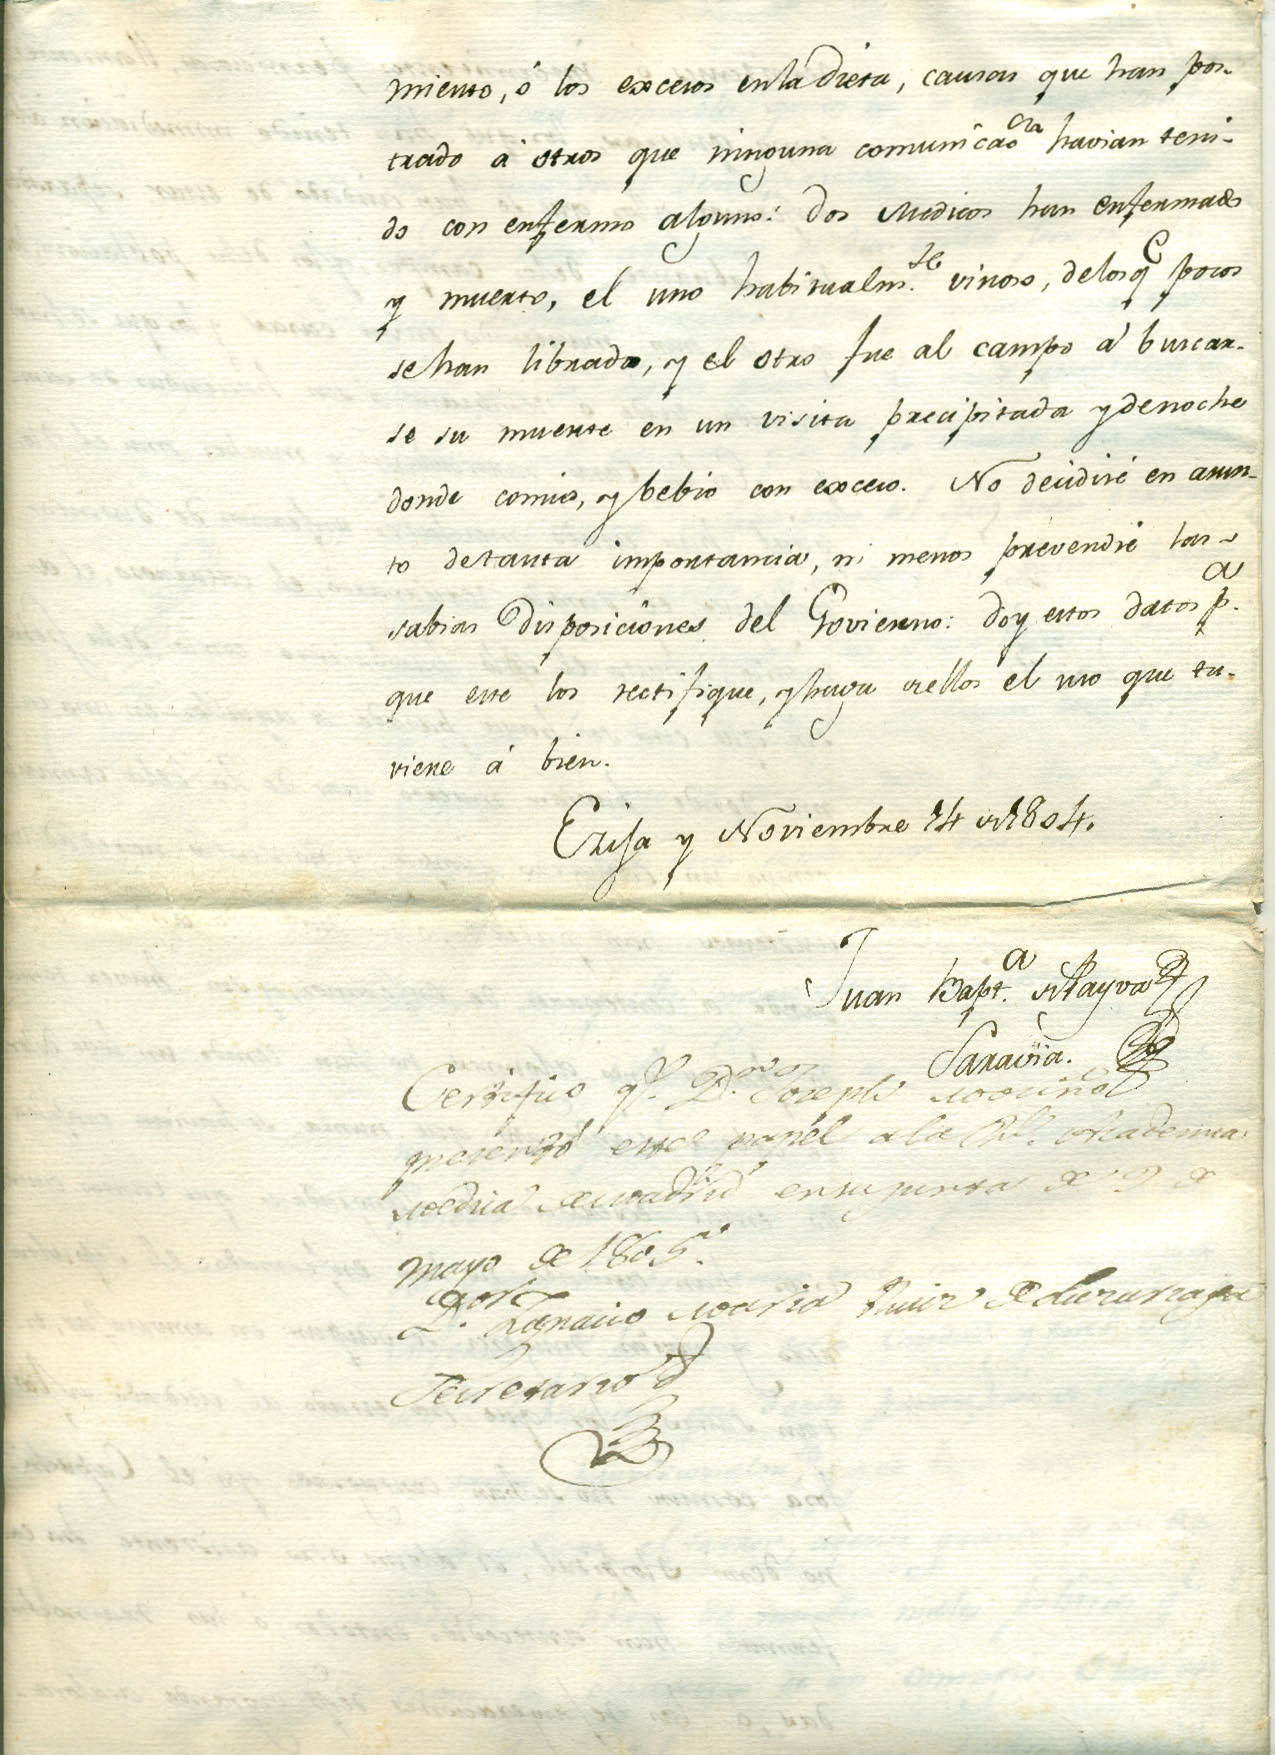 miento, ó los excesos en la Dieta, causas que han pos-
trado á otros que ninguna comunicac.on havian teni-
do con enfermo alguno: dos Medicos han enfermado
y muerto, el uno habitualm.te vinoso, delos q.e pocos
sehan librado, y el otro fue al campo á buscar-
se su muerte en un visita precipitada y denoche
donde comió, y bebió con exceso. No decidiré en asun-
to detanta importancia, ni menos prevendré las
sabias Disposiciones del Govierno: doy estos datos p.a
que este los rectifique, y haga de ellos el uso que tu-
viere á bien.
Ecija y Noviembre 14 de 1804.
Juan Bapt.a Mayoa
Saravia.
Certifico q.e D.or Joseph
presentó este papel a la R.l Academia
Medica de Madrid en su junta de 9 de
Mayo de 1805.
D.or Ignacio Maria Ruiz de Luzuriaga
Secretario